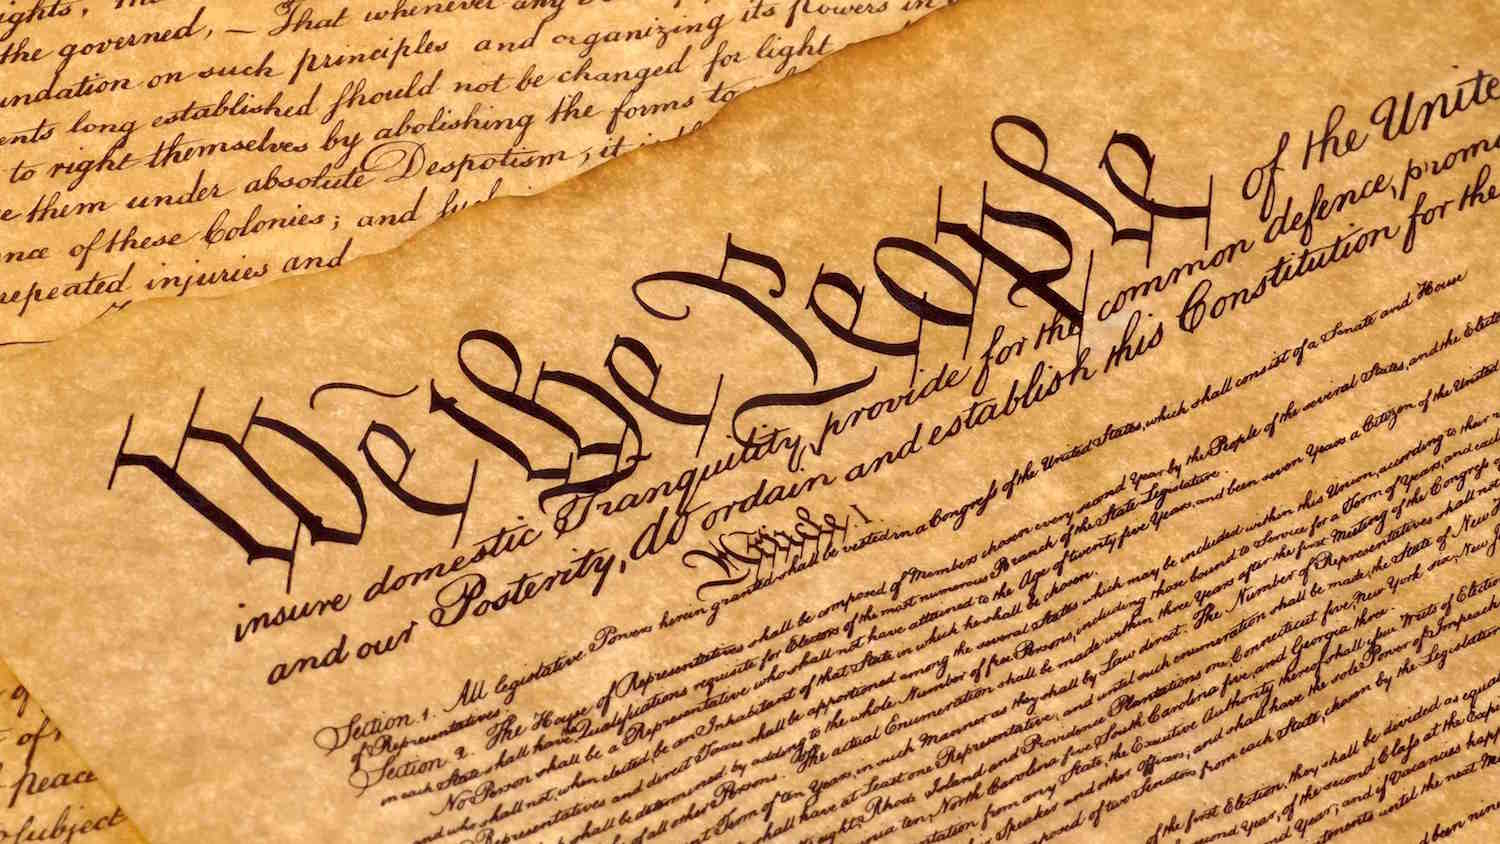 ights,
the governed, — That whenever any
undation on such principles and organizing its powers in
ents long established should not be changed for light
to right themselves by abolishing the forms to
them under absolute Despotism, it is
nce of these Colonies; and such
repeated injuries and
We the People of the Unite
insure domestic Tranquility, provide for the common defence, promo
and our Posterity, do ordain and establish this Constitution for the
Article. I.
Section. 1. All legislative Powers herein granted shall be vested in a Congress of the United States, which shall consist of a Senate and House
of Representatives.
Section. 2. The House of Representatives shall be composed of Members chosen every second Year by the People of the several States, and the Elect
in each State shall have Qualifications requisite for Electors of the most numerous Branch of the State Legislature.
No Person shall be a Representative who shall not have attained to the Age of twenty five Years, and been seven Years a Citizen of the United
and who shall not, when elected, be an Inhabitant of that State in which he shall be chosen.
Representatives and direct Taxes shall be apportioned among the several States which may be included within this Union, according to their
shall be determined by adding to the whole Number of free Persons, including those bound to Service for a Term of Years, and
of all other Persons. The actual Enumeration shall be made within three Years after the first Meeting of the Congress
Term of ten Years, in such Manner as they shall by Law direct. The Number of Representatives shall not
shall have at Least one Representative; and until such enumeration shall be made, the State of New
eight, Rhode Island and Providence Plantations one, Connecticut five, New York six, New
ten, North Carolina five, South Carolina five, and Georgia three.
from any State, the Executive Authority thereof shall issue Writs of Election
Speaker and other Officers; and shall have the sole Power of Impeach
composed of two Senators from each State, chosen by the Legislature
of the first Election, they shall be divided as equal
second Year, of the second Class at the Expi
Year; and if Vacancies happ
until the next M
been nine
of
peace
subject